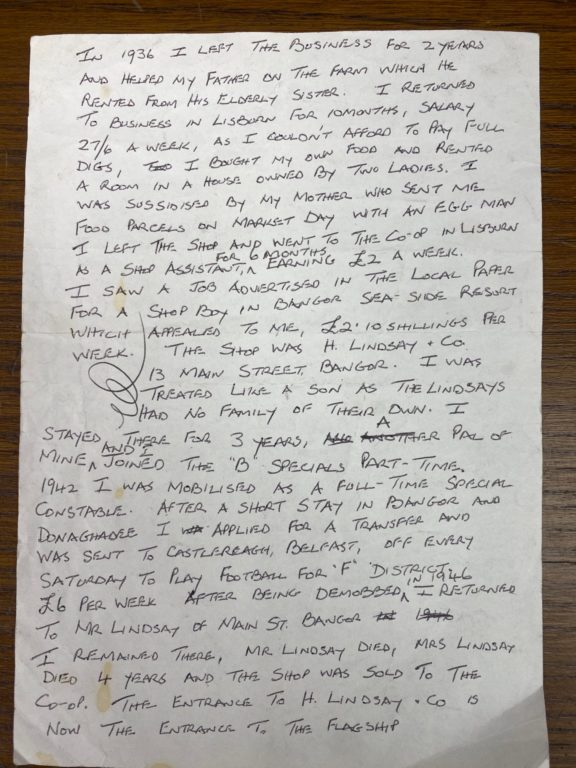 IN 1936 I LEFT THE BUSINESS FOR 2 YEARS
AND HELPED MY FATHER ON THE FARM WHICH HE
RENTED FROM HIS ELDERLY SISTER. I RETURNED
TO BUSINESS IN LISBURN FOR 10 MONTHS, SALARY
27/6 A WEEK, AS I COULDN'T AFFORD TO PAY FULL
DIGS, I BOUGHT MY OWN FOOD AND RENTED
A ROOM IN A HOUSE OWNED BY TWO LADIES. I
WAS SUSSIDISED BY MY MOTHER WHO SENT ME
FOOD PARCELS ON MARKET DAY WITH AN EGG MAN
I LEFT THE SHOP AND WENT TO THE CO-OP IN LISBURN
AS A SHOP ASSISTANT, FOR 6 MONTHS EARNING £2 A WEEK.
I SAW A JOB ADVERTISED IN THE LOCAL PAPER
FOR A SHOP BOY IN BANGOR SEA-SIDE RESORT
WHITCH APPEALED TO ME, £2·10 SHILLINGS PER
WEEK. THE SHOP WAS H. LINDSAY + CO.
13 MAIN STREET, BANGOR. I WAS
TREATED LIKE A SON AS THE LINDSAYS
HAD NO FAMILY OF THEIR OWN. I
STAYED THERE FOR 3 YEARS, A PAL OF
MINE AND I JOINED THE "B" SPECIALS PART-TIME.
1942 I WAS MOBILISED AS A FULL-TIME SPECIAL
CONSTABLE. AFTER A SHORT STAY IN BANGOR AND
DONAGHADEE I APPLIED FOR A TRANSFER AND
WAS SENT TO CASTLEREAGH, BELFAST, OFF EVERY
SATURDAY TO PLAY FOOTBALL FOR "F" DISTRICT.
£6 PER WEEK AFTER BEING DEMOBBED IN 1946 I RETURNED
TO MR LINDSAY OF MAIN ST. BANGOR
I REMAINED THERE, MR LINDSAY DIED, MRS LINDSAY
DIED 4 YEARS AND THE SHOP WAS SOLD TO THE
CO-OP. THE ENTRANCE TO H. LINDSAY + CO IS
NOW THE ENTRANCE TO THE FLAGSHIP